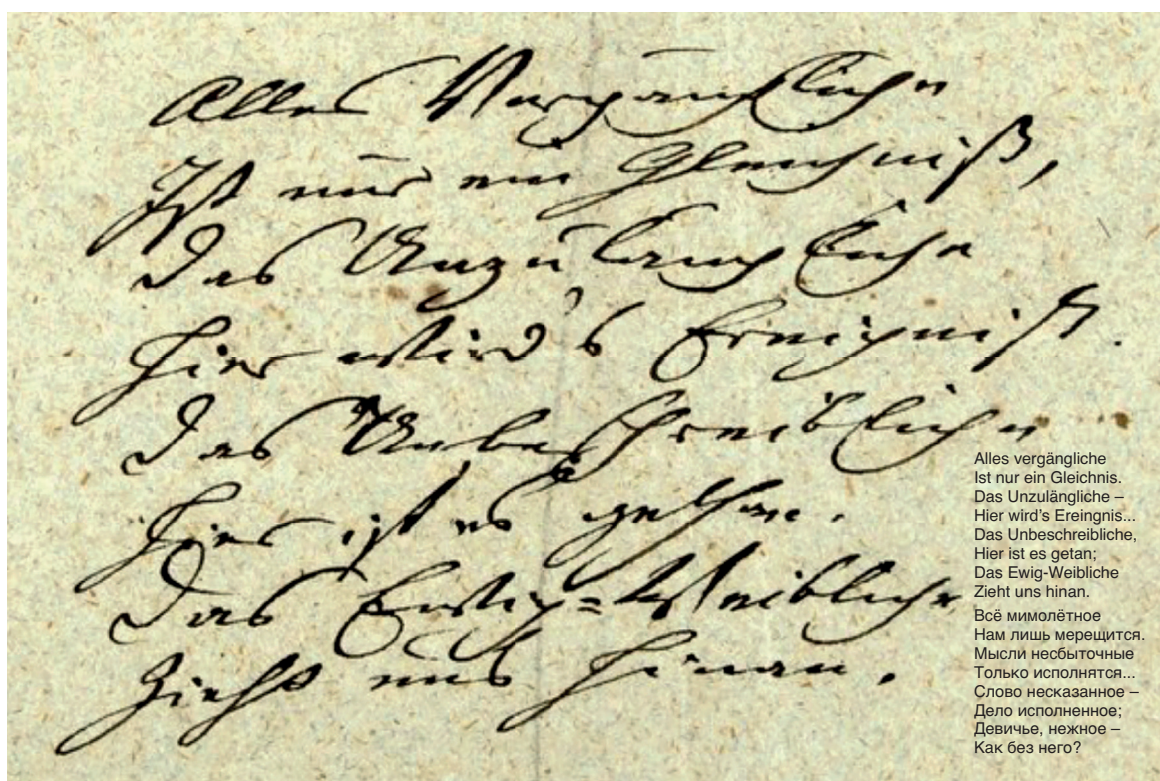 Alles Vergängliche
Ist nur ein Gleichniß,
Das Unzulängliche
Hier wird's Ereigniß.
Das Unbeschreibliche
Hier ist es gethan.
Das Ewig=Weibliche
Zieht uns hinan.
Alles vergängliche
Ist nur ein Gleichnis.
Das Unzulängliche –
Hier wird’s Ereingnis...
Das Unbeschreibliche,
Hier ist es getan;
Das Ewig-Weibliche
Zieht uns hinan.
Всё мимолётное
Нам лишь мерещится.
Мысли несбыточные
Только исполнятся...
Слово несказанное –
Дело исполненное;
Девичье, нежное –
Как без него?